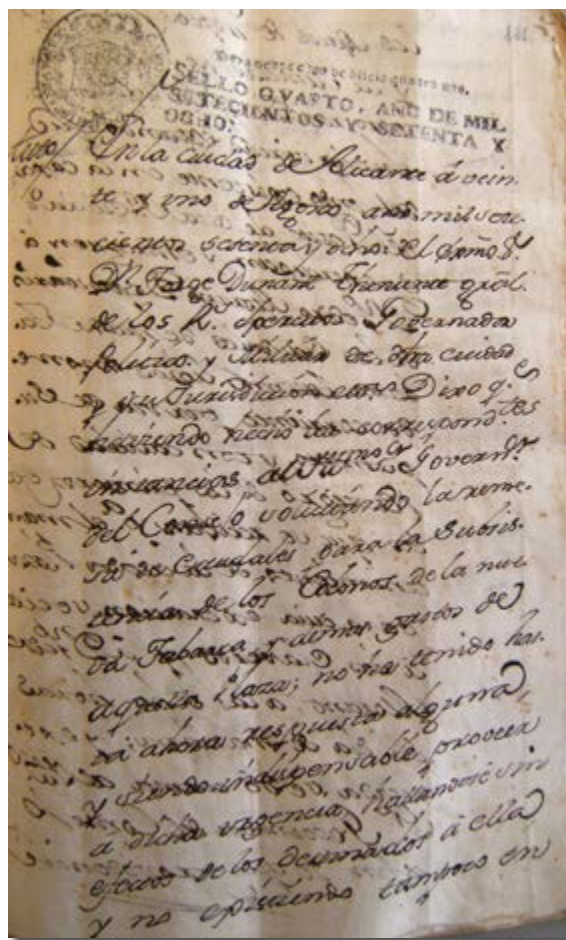 Para despachos de oficio quatro mrs.
SELLO QVARTO, AÑO DE MIL
SETECIENTOS Y SETENTA Y
OCHO.
Auto/ En la ciudad de Alicante á vein-
te y uno de Agosto año mil sete-
cientos setenta y ocho: El Exmo Sr.
Dn. Jorge Dunant Theniente gral.
de los Rs. exercitos Governador
Politico y Militar de dha ciudad
y su Jurisdiccion etca. Dixo qe.
haviendo hecho las correspondtes
instancias al Supmo Governr.
del Consejo solicitando la reme-
sa de Caudales para la subsis-
tencia de los Colonos de la nue-
va Tabarca y demas gastos de
aquella Plaza; no ha tenido has-
ta ahora respuesta alguna,
Y siendo indispensable proveer
a dicha urgencia hallandose sin
efectos de los destinados á ella
y no existiendo tampoco en